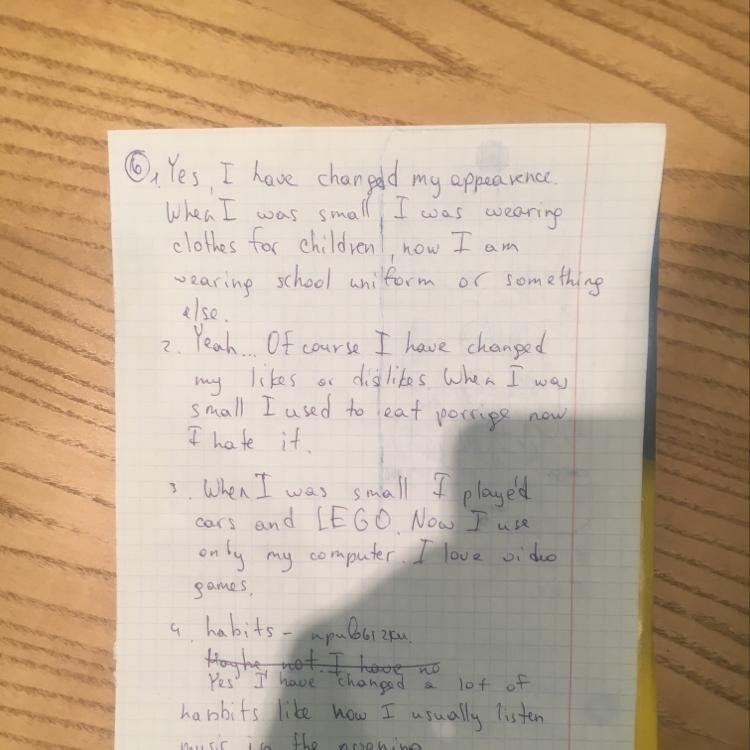 6 1. Yes, I have changed my appearence.
When I was small I was wearing
clothes for children, now I am
wearing school uniform or something
else.
2. Yeah... Of course I have changed
my likes or dislikes When I was
small I used to eat porrige now
I hate it.
3. When I was small I played
cars and LEGO. Now I use
only my computer. I love video
games.
4. habits -
Maybe not. I have no
Yes I have changed a lot of
habbits like now I usually listen
music in the